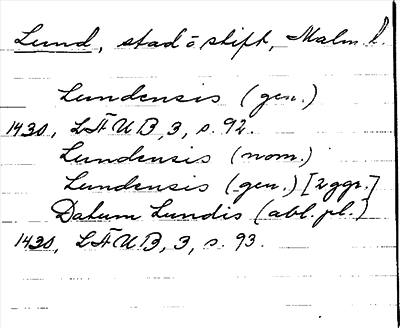 Lund, stad o stift, Malm. l.
Lundensis (gen.)
1430, LÄUB, 3, s. 92.
Lundensis (nom.)
Lundensis (gen.) [2 ggr.]
Datum Lundis (abl. pl.)
1430, LÄUB, 3, s. 93.